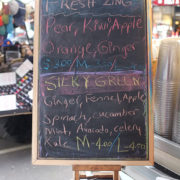 FRESH ZING
Pear, Kiwi, Apple
Orange, Ginger
SILKY GREEN
Ginger, Fennel, Apple
Spinach, cucumber
Mint, Avocado, celery
Kale M-4.00/L-4.50